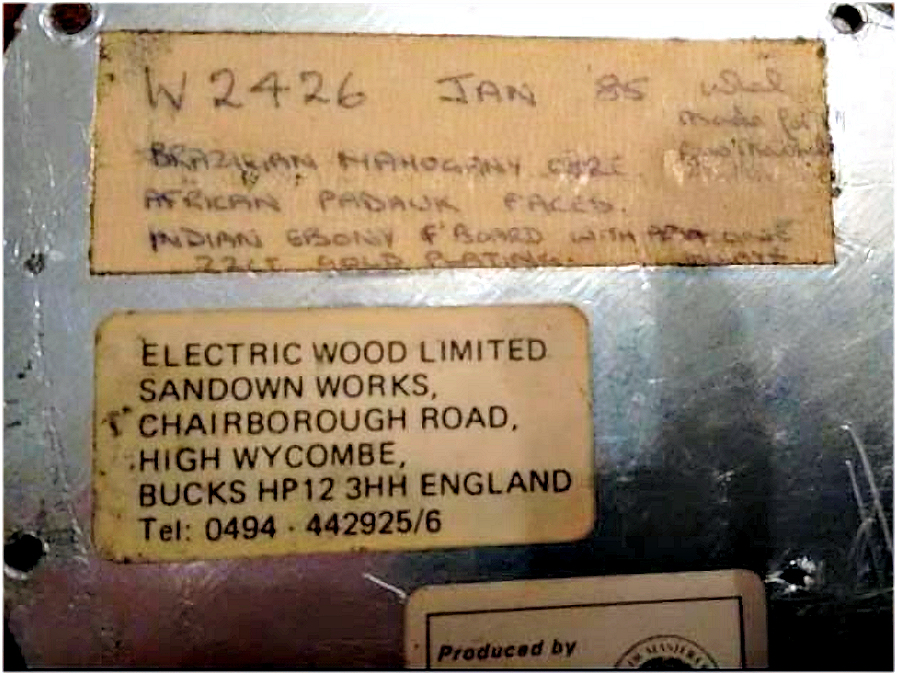 W 2426 JAN '85
made for
BRAZILIAN MAHOGANY CORE
AFRICAN PADAUK FACES.
INDIAN EBONY F'BOARD WITH
22CT GOLD PLATING.
ELECTRIC WOOD LIMITED
SANDOWN WORKS,
CHAIRBOROUGH ROAD,
HIGH WYCOMBE,
BUCKS HP12 3HH ENGLAND
Tel: 0494 · 442925/6
Produced by